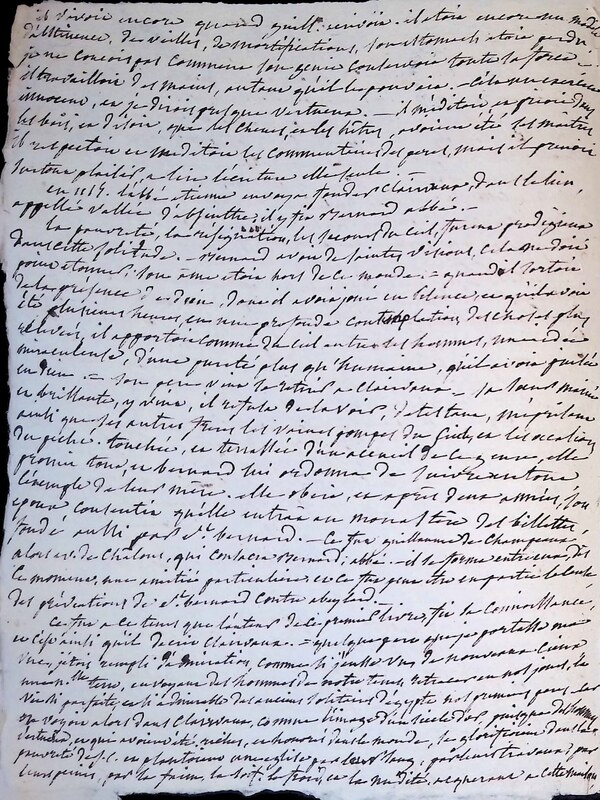 il vivoit encore quand quelq. écrivoit. il étoit encore un modèle
d'abstinence, de veilles, de mortifications, son estomach étoit perdu
je ne conçois pas comment son génie conservoit toute sa force —
il travailloit des mains, autant qu'il le pouvoit. — cela un exercice
innocent, et je dirois presque vertueux. — il méditoit et prioit dans
les bois, et disoit, que les chenes, et les hêtres, avoient été ses maitres
il respectoit et méditoit les commentaires des peres, mais il prenoit
surtout plaisir, a lire l'écriture elle seule. —
en 1115. l'abbé etienne envoya fonder Clairvaux, dans le lieu,
appellé vallée d'absinthe, il y fit Bernard abbé. —
la pauvreté, la résignation, les secours du ciel, furent prodigieux
dans cette solitude. — Bernard avoit de saintes visions, cela ne doit
point étonner. son ame étoit hors de ce monde. — quand il sortoit
de la présence de dieu, dont il avoit joui en silence, et qu'il avoit
été plusieurs heures, en une profonde contemplation, des choses plus
relevées, il apportoit comme du ciel entre les hommes, une idée
miraculeuse, d'une pureté plus qu'humaine, qu'il avoit puisée
en dieu. — son pere vint se retirer a clairvaux — sa soeur mariée
et brillante, y vint, il refusa de la voir, détestant, méprisant
ainsi que ses autres freres les vaines pompes du siècle, et les occasions
du péché. touchée, et terrassée d'un accueil de ce genre, elle
promit tout, et bernard lui ordonna de suivre en tout
l'exemple de leur mère. elle obéit, et après deux années, son
époux consentit qu'elle entrat au monastère des billettes
fondé aussi par st. bernard. — ce fut guillaume de Champeaux
alors ev. de Châlons, qui consacra Bernard, abbé. — il se forma entre eux dès
ce moment, une amitiée particuliere, et ce fut peut être en partie la cause
des préventions de st. bernard contre abaylard. —
ce fut a ce tems que l'auteur de ce premier livre, fit sa connoissance,
et c'est ainsi qu'il décrit clairvaux. — quelque part que je portasse ma
vue, j'étois rempli d'admiration, comme si j'eusse vu de nouveaux cieux
une nlle terre, et voyant des hommes de notre tems, retracer en nos jours, la
vie si parfaite, et si admirable des anciens solitaires d'égypte nos premiers peres. car
on voyoit alors dans Clairvaux, comme l'image d'un siecle d'or, puisque des hommes
vertueux, et qui avoient été, riches, et honorés dans le monde, se glorifioient dans la
pauvreté de J. C. et plantoient une eglise par leur sang, par leurs travaux, par
leurs peines, par la faim, la soif, le froid, et la nudité, acquerant a cette maison